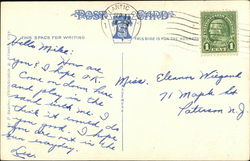 POST CARD
THIS SPACE FOR WRITING
THIS SIDE IS FOR THE ADDRESS
ATLANTIC
1 CENT 1
Hello Mike:
How are
you? I hope O.K.
Come on down here
and play in the
sand with me. I
think it would do
you good. I hope
you are not in the
sun everyday.
Miss. Eleanor Wiegand
71 Maple St
Paterson N.J.